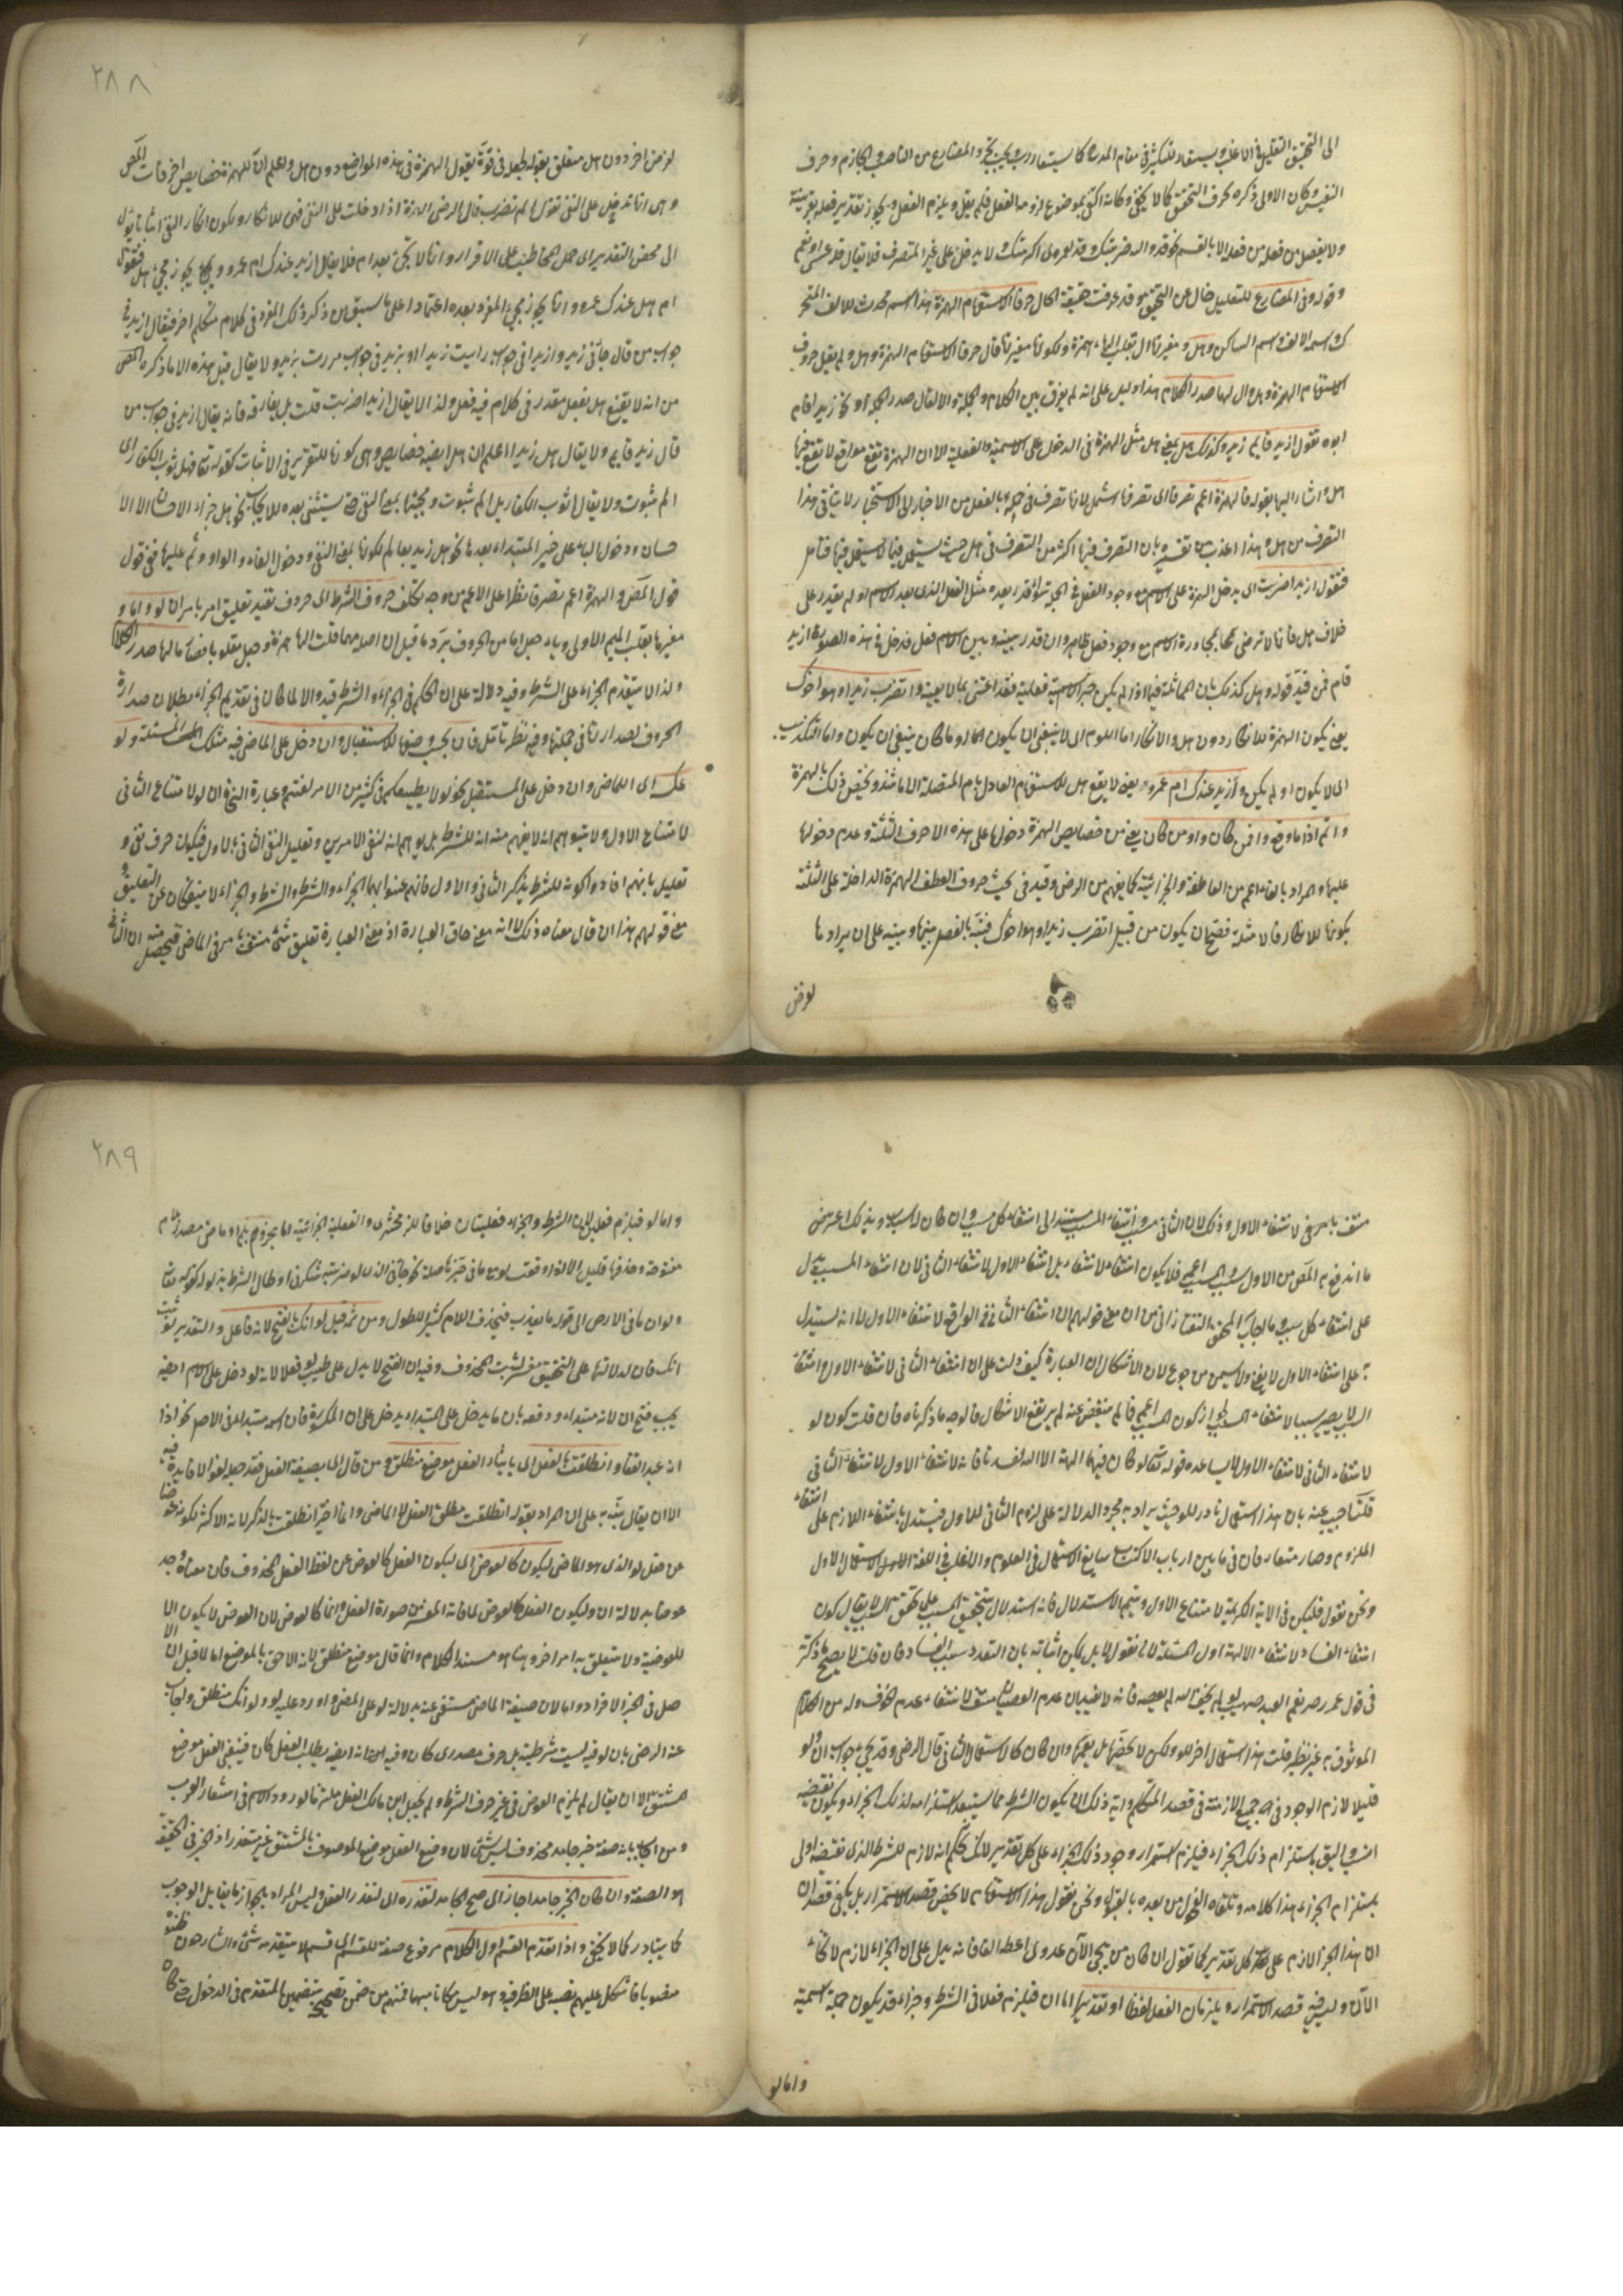 الى التحقيق التقليل في الاغلب ويستفاد للتكثير في مقام المدح كما يستفاد رب يجب تجرد المضارع من الناصب والجازم وحرف
التنفيس وكان الاولى ذكره بحرف التحقيق كما لا يخفى وكانه اكتفى بموضوع لزومه الفعل فلم يقل ويلزم الفعل ويجوز تقدير فعله بقرينة
ولا يفصل من فعله الا بالقسم نحو قد والله ضربتك وقد لعمري اكرمتك ولا يدخل على غير المتصرف فلا يقال قد عسى او نعم
وقوله وفي المضارع للتقليل خال عن التحقيق وقد عرفت حقيقة الحال حرفا الاستفهام الهمزة هذا اسم محدث للالف المتحر
ك واسم الالف واسم الساكن وهل ومغيرتا ال تقلب الهاء همزة ولكونها مغيرتها قال حرفا الاستفهام الهمزة وهل ولم يقل حروف
الاستفهام الهمزة وهل وال لهما صدر الكلام هذا دليل على انه لم يفرق بين الكلام والجملة والا لقال صدر الجملة او نحو زيد اقام
ابوه تقول ازيد قايم زيد وكذلك هل يعني هل مثل الهمزة في الدخول على الاسمية والفعلية الا ان الهمزة تقع مواقع لا تقع فيها
هل واشار اليها بقوله والهمزة اعم تصرفا اي تصرفها اشمل لانها تصرف في جملة بالفعل من الاخبار الى الاستخبار لا يتاتى هذا
التصرف من هل وهذا اعذب من تفسيره بان التصرف فيها اكثر من التصرف في هل حيث يستعمل فيما لا يستعمل فيها فتامل
فتقول ازيدا ضربت اي يدخل الهمزة على الاسم مع وجود الفعل في الجملة سواء قدر بعده مثل الفعل الذي بعد الاسم او لم يقدر على
خلاف هل فانها لا ترضى بمجاورة الاسم مع وجود فعل ظاهر وان قدر بينه وبين الاسم فعل فدخل في هذه الصورة ازيد
قام فمن قيد قوله وهل كذلك بان المماثلة فيما اذا لم يكن خبر الاسمية فعلية فقد اعتنى بما لا يعنيه واتضرب زيدا وهو اخوك
يعني يكون الهمزة للانكار دون هل والانكار اما اللوم اي لا ينبغي ان يكون انكارا وما كان ينبغي ان يكون واما التكذيب
اي لا يكون او لم يكن وازيد عندك ام عمرو يعني لا يقع هل للاستفهام العادل بام المتصلة الا ما شذ ويختص ذلك بالهمزة
واثم اذا ما وقع وافمن كان واومن كان يعني من خصايص الهمزة دخولها على هذه الاحرف الثلثة وعدم دخولها
عليها والمراد بالفاء اعم من العاطفة والجزائية كما يفهم من الرضي وقيد في بحث حروف العطف الهمزة الداخلة على الثلثة
بكونها للانكار فالامثلة فصح ان يكون من قبيل اتضرب زيدا وهو اخوك فنبه بالفصل بينها وبينه على ان ايرادها
لغرض
٢٨٨
لغرض اخر دون هل متعلق بقوله لجعله في قوة يقول الهمزة في هذه المواضع دون هل واعلم ان للهمزة خصايص اخر فات المص
وهي انها تدخل على النفي تقول الم تضرب قال الرضي الهمزة اذا دخلت على النفي فهي للانكار ويكون انكار النفي اثباتا يؤل
الى محض التقدير اي حمل المخاطب على الاقرار وانها لا يجئ بعد ام فلا يقال ازيد عندك ام اعمرو ويجوز مجئ هل فتقول
ام هل عندك عمرو وانها يجوز مجئ المفرد بعده اعتمادا على ما سبق من ذكر ذلك المفرد في كلام متكلم اخر فيقال ازيد في
جواب من قال جاءني زيد وازيدا في جواب رايت زيدا او بزيد في جواب مررت بزيد ولا يقال قبل هذه الا ما ذكره المص
من انه لا يقنع هل بفعل مقدر في كلام فيه فعل ولذا لا يقال ازيدا ضربت قلت بل يفارقه فانه يقال ازيد في جواب من
قال زيد قايم ولا يقال هل زيد اعلم ان هل ايضا خصايص وهي كونها للتقرير في الاثبات كقوله تعالى هل ثوب الكفار اي
الم ثبوت ولا يقال اثوب الكفار بل الم ثبوت ومجيئها بمعنى النفي حتى يستثنى بعده للايجاب نحو هل جزاء الاحسان الا الا
حسان ودخول الباء على خبر المبتداء بعدها نحو هل زيد بعالم لكونها بمعنى النفي ودخول الفاء والواو وثم عليها فمن قول
قول المص والهمزة اعم تصرفا نظرا على الاعم من وجه تكلف حروف الشرط اي حروف تفيد تعليق امر بامر ان لو واما و
مغيرها بقلب الميم الاولى وياء جعل اما من الحروف يرد ما قيل ان اصله مهما قلبت الهاء همزة وجعل مقلوبا فصار اما لها صدر الكلام
ولذا لا يتقدم الجزاء على الشرط وفيه دلالة على ان الحكم في الجزاء والشرط قيد والا لما كان في تقديم الجزاء بطلان صدارة
الحروف لصدارتها في جملتها وفيه نظر تامل فان يجب وضعها للاستقبال وان دخل على الماضي فيه مثلك المسئلة ولو
عكسه اي للماضي وان دخل على المستقبل نحو لو لا يطيعكم في كثير من الامر لعنتم وعبارة النحاة ان لو لامتناع الثاني
لامتناع الاول ولا يتوهم انه لا يفهم منه انه للشرط بل يوهم انه لنفي الامرين وتعليل النفي الثاني بالاول فيكون حرف نفي و
تعليل بانهم افادوا كونه للشرط بذكر الثاني والاول فانهم عنوا بهما الجزاء والشرط والشرط والجزاء لا ينفكان عن التعليق و
مع قولهم هذا ان قال معناه ذلك لا انه معنى حاق العبارة اذ معنى العبارة تعليق شئ منتف بامر في الماضي فيحصل منه ان الثاني
منتف بامر في لانتفاء الاول وذلك لان الثاني مسبب وانتفاء المسبب يستند الى انتفاء كل سبب وان كان له اسباب وبذلك اعترض
ما اندفع به المص من الاول سبب والمسبب اعم فلا يكون انتفاء لانتفاء بل انتفاء الاول لانتفاء الثاني لان انتفاء المسبب يدل
على انتفاء كل سبب وما اجاب المحقق التفتازاني من ان معنى قولهم ان انتفاء الثاني في الواقع لانتفاء الاول لا انه ليستدل
به على انتفاء الاول لا يغني ولا يسمن من جوع لان الاشكال ان العبارة كيف دلت على ان انتفاء الثاني لانتفاء الاول وانتفاء
السبب لا يصير سببا لانتفاء المسبب لجواز كون المسبب اعم فما لم ينقض عنه لم يرتفع الاشكال فالوجه ما ذكرناه فان قلت كون لو
لانتفاء الثاني لانتفاء الاول لا يساعده قوله تعالى لو كان فيهما الهة الا الله لفسدتا فانه لانتفاء الاول لانتفاء الثاني
قلت اجيب عنه بان هذا استعمال نادر للو حيث يراد به مجرد الدلالة على لزوم الثاني للاول فيستدل بانتفاء اللازم على انتفاء
الملزوم وصار متعارفا في ما بين ارباب الاكتساب شايع الاستعمال في العلوم والاغلب في اللغة الاستعمال الاول
ونحن نقول فليكن في الاية الكريمة لامتناع الاول ويتم الاستدلال فانه استدلال بتحقيق المسبب على تحقق السبب لا يقال كون
انتفاء الفساد لانتفاء الالهة اول المسئلة لانا نقول لا بل يمكن اثباته بان التعدد سبب الفساد فان قلت لا يصح ما ذكرته
في قول عمر رض نعم العبد صهيب لو لم يخف الله لم يعصه فانه لا بيان عدم العصيان منتف لانتفاء عدم الخوف وله من الكلام
الموثوق به غير نظير قلت هذا استعمال اخر للو ولكن لا يخصها بل يعمها وان كان كالاستعمال الثاني قال الرضي وقد يجئ جواب ان ولو
قليلا لازم الوجود في جميع الازمنة في قصد المتكلم واية ذلك ان يكون الشرط مما يستبعد استلزامه لذلك الجزاء ويكون نقيضه
انسب واليق باستلزام ذلك الجزاء فيلزم استمرار وجود ذلك الجزاء على كل تقدير لانك تحكم انه لازم للشرط الذي نقيضه اولى
باستلزام الجزاء هذا كلامه وتلقاه الفحول من بعده بالقبول ونحن نقول هذا الاستفهام لا يخص قصد الاستمرار بل يكفي قصد ان
ان هذا الجزاء لازم على كل تقدير كما تقول ان كان من يجئ الآن عدوي اعطه الفا فانه يدل على ان الجزاء لازم لانحاء
الآن وليس فيه قصد الاستمرار ويلزمان الفعل لفظا او تقديرا اما ان فيلزم فعلا في الشرط وجزاءه قد يكون جملة اسمية
واما لو
٢٨٩
واما لو فيلزم فعلين لان الشرط والجزاء فعليتان خلافا للزمخشري والفعلية الجزائية اما مجزوم بلم او ماض مصدر بلام
مفتوحة وحذفها قليل الا اذا وقعت لو بما في حيزها صلة نحو جاءني الذي لو ضربته شكرني او طال الشرط بذيوله كقوله تعالى
ولو ان ما في الارض الى قوله ما يعذب فيحذف اللام كثيرا للطول ومن ثمة قيل لو انك بالفتح لانه فاعل والتقدير لو ثبت
انك فان لدلالتها على التحقيق مفسر لثبت المحذوف وفيه ان الفتح لا يدل على طلب لو فعلا لانه لو دخل على الاسم ايضا
يجب فتح ان لانه مبتداء ودفعه بان ما يدخل على المبتداء يدخل على ان المكسورة فان اسمه مبتداء في الاصل نحو اذا
انه عبد القفا وانطلقت بالفعل اي بايثار الفعل موضع منطلق ومن قال اي بصيغة الفعل فقد جعله لغوا لا فائدة فيه
الا ان يقال ينبه على ان المراد بقوله انطلقت مطلق الفعل لا الماضي وانما اخير انطلقت بالذكر لانه الاكثر لكونه عوضا
عن فعل لو الذي هو الماضي ليكون كالعوض اي ليكون الفعل كالعوض عن لفظ الفعل المحذوف فان معناه وجد
عوضا بدلالة ان وليكون الفعل كالعوض لما فاته المعوض صورة الفعل وانما كالعوض لان العوض لا يكون الا
للعوضية ولا متعلق به امر اخر وههنا هو مسند الكلام وانما قال موضع منطلق لانه الاحق بالموضع اما لما قيل ان الا
صل في الخبر الافراد واما لان صيغة الماضي مستغنى عنه بدلالة لو على المضي واورد عليه لو ولو انك منطلق ولجاب
عنه الرضي بان لو فيه ليست شرطية بل حرف مصدري كان وفيه انها انه ايضا يطلب الفعل كان فينبغي الفعل موضع
المشتق الا ان يقال لم يلزم العوض في غير حرف الشرط ولم يجعل ابن مالك الفعل ملتزما لورود الاسم في اشعار العرب
ومن اجاب بانه صفة خبر جامد محذوف ليس بشئ لان وضع الفعل موضع الموصوف بالمشتق غير متعذر اذ الخبر في الحقيقة
هو الصفة وان كان الخبر جامدا جاز اي صح الجامد لتعذره اي لتعذر الفعل وليس المراد بالجواز ما يقابل الوجوب
كما يتبادر كما لا يخفى واذا تقدم القسم اول الكلام مرفوع صفة للقسم اي قسم لا يتقدمه شئ والشارحون ظنوه
منصوبا فاشكل عليهم نصبه على الظرفية وهو ليس مكانا مبهما فمنهم من ضمن تصحيح بتضمين المتقدم في الدخول حتى كانه